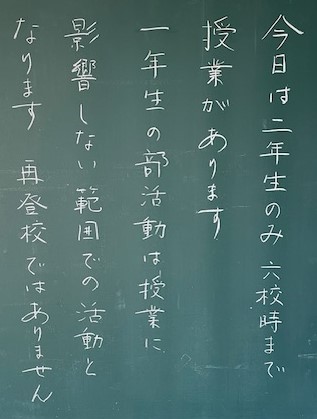 今日は二年生のみ 六校時まで
授業があります
一年生の部活動は授業に
影響しない範囲での活動と
なります 再登校ではありません